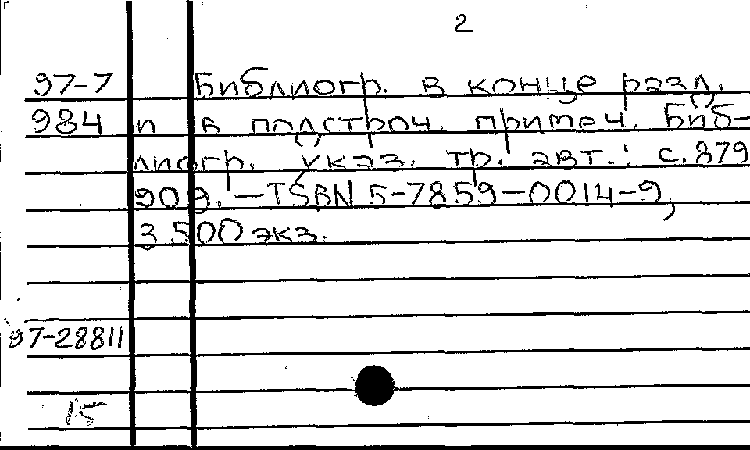 2
97-7 Библиогр. в конце разд.
984 и в подстроч. примеч. Биб-
лиогр. указ. тр. авт.: с. 879
909. – ISBN 5-7859-0014-9,
3 500 экз.
97-28811
15